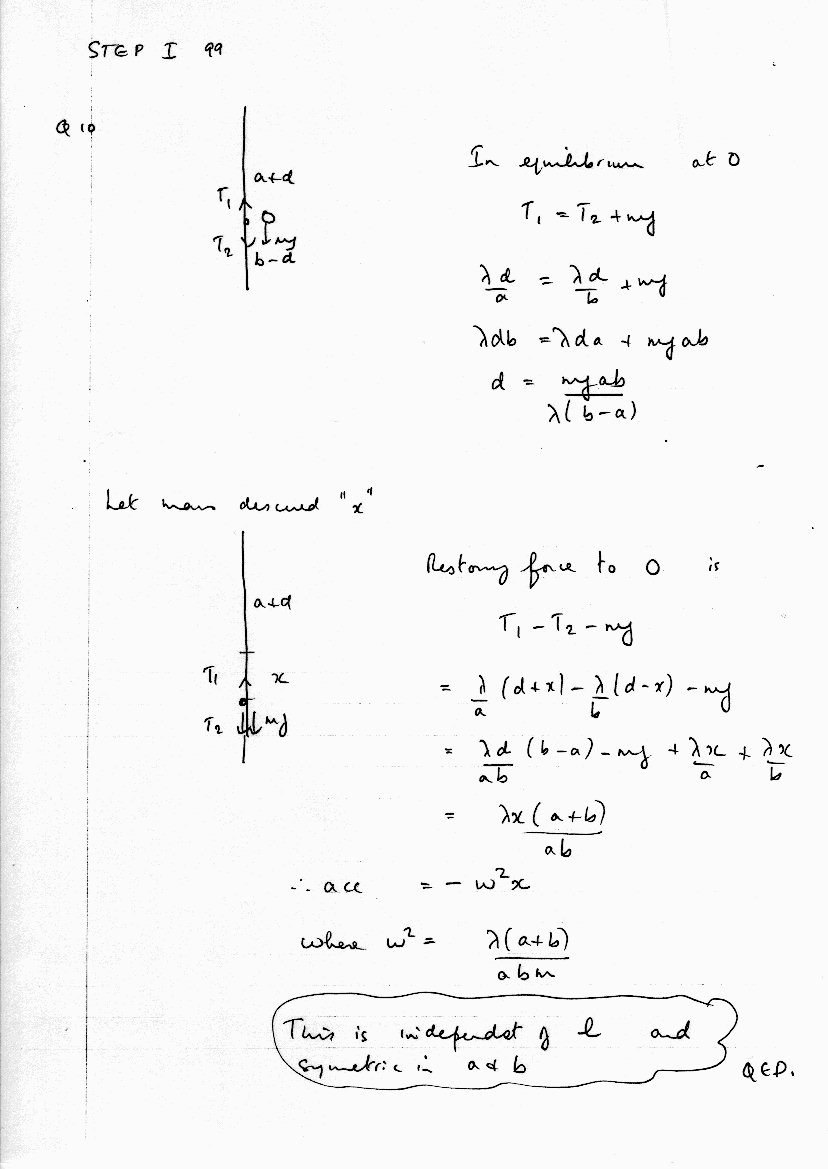 STEP I 99
Q 10
a+d
T₁
T₂
mg
b-d
In equilibrium at O
T₁ = T₂ + mg
λd/a = λd/b + mg
λdb = λda + mgab
d = mgab/λ(b-a)
Let mass descend "x"
a+d
T₁
x
T₂
mg
Restoring force to O is
T₁ - T₂ - mg
= λ/a (d+x) - λ/b (d-x) - mg
= λd/ab (b-a) - mg + λx/a + λx/b
= λx(a+b)/ab
∴ acc = - ω²x
where ω² = λ(a+b)/abm
This is independet of l and
symetric in a & b
QED.